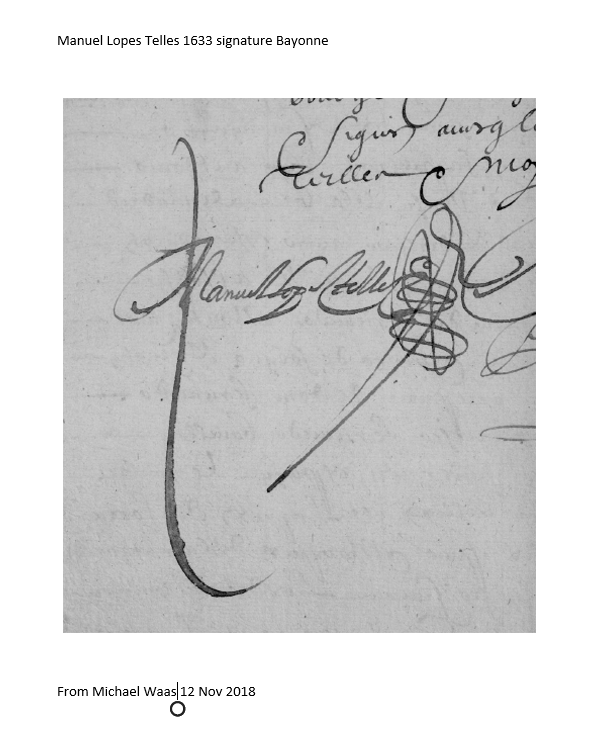 Manuel Lopes Telles 1633 signature Bayonne
Telles
Manuel Lopes Telles
From Michael Waas 12 Nov 2018